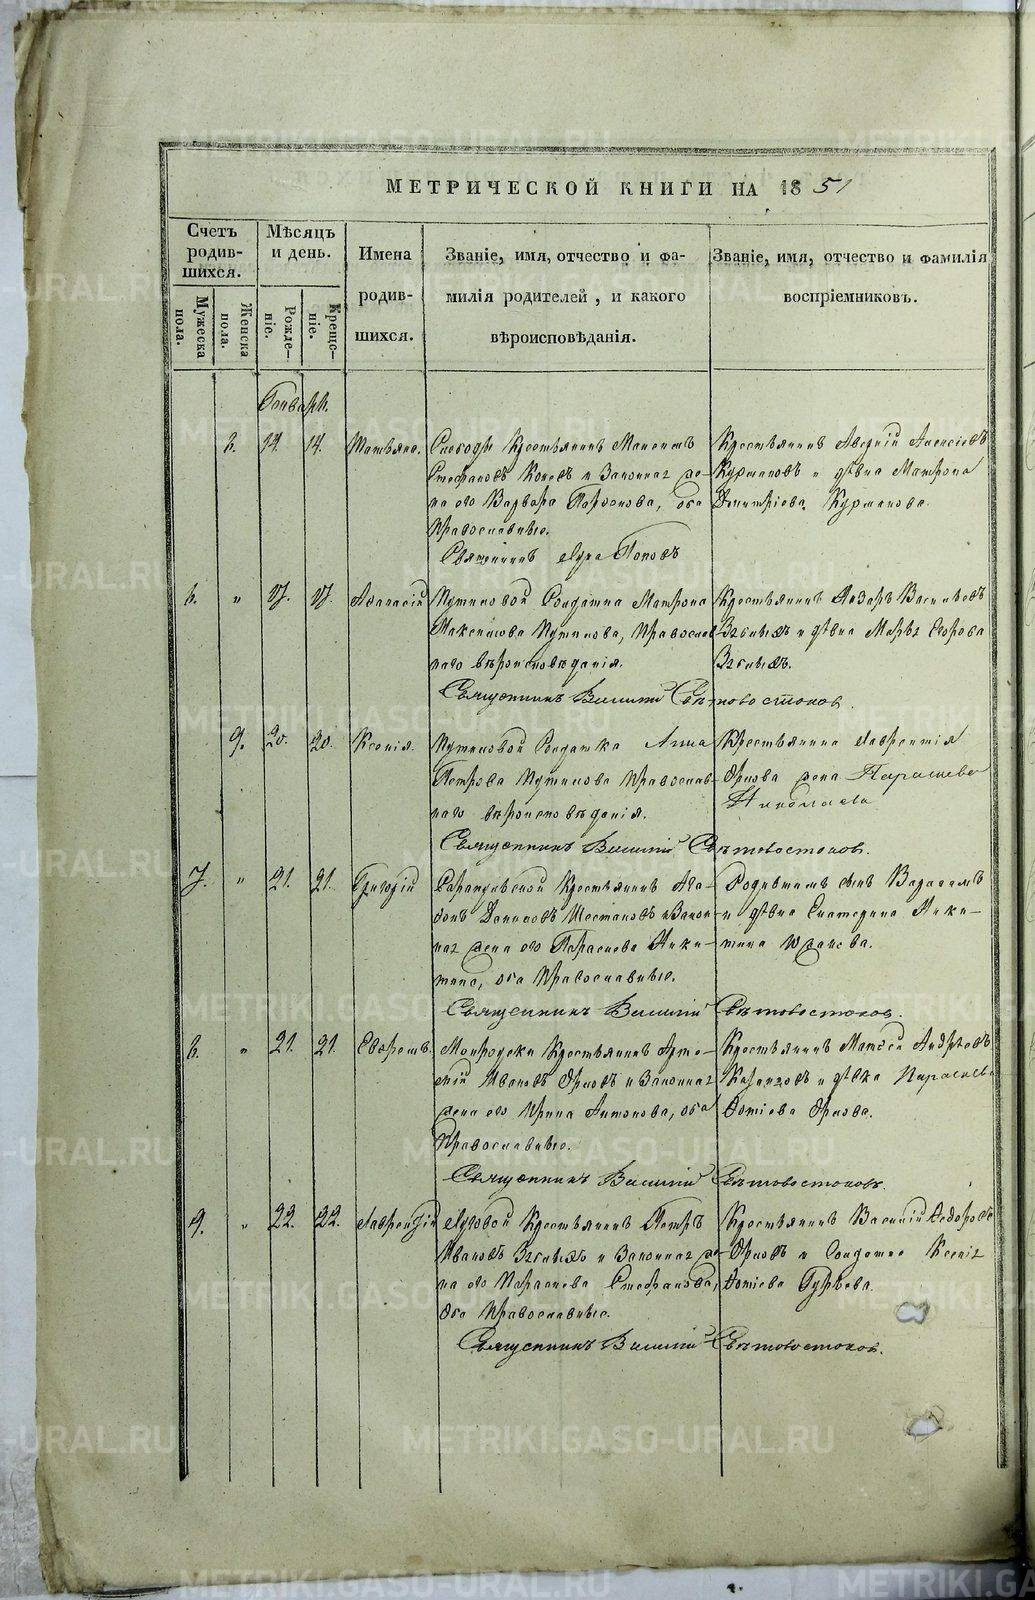 МЕТРИЧЕСКОЙ КНИГИ НА 1851
Счетъ родив-шихся.
Мѣсяцъ и день.
Имена родив-шихся.
Званіе, имя, отчество и фа-
милія родителей, и какого
вѣроисповѣданія.
Званіе, имя, отчество и фамилія
воспріемниковъ.
Мужеска пола.
Женска пола.
Рожде-ніе.
Креще-ніе.
Генварь.
14. 14. Татьяна.
Слободы Крестьянинъ
Стефановъ и Законная же-
на его Варвара, оба
Православные.
Священникъ Поповъ
Крестьянинъ Аверкій Алексѣевъ
Курмановъ и дѣвка Матрона
Дмитріева Курманова.
" 17. 17. Аѳанасій
Путиловой Солдатка Матрона
Максимова Путилова, Православ
наго вѣроисповѣданія.
Священникъ Василій Свѣтовостоковъ.
Крестьянинъ Лазарь Васильевъ
и дѣвка Марья Егорова
9. 20. 20. Ксенія.
Путиловой Солдатка Анна
Петрова Путилова Православ-
наго вѣроисповѣданія.
Священникъ Василій Свѣтовостоковъ.
Крестьянина Лаврентія
Орлова жена Параскева
Николаева
7. " 21. 21. Григорій
Крестьянинъ Ага-
фонъ Даниловъ Шестаковъ и Закон
ная жена его Параскева Ники-
тина, оба Православные.
Священникъ Василій Свѣтовостоковъ.
Родившагося сынъ
и дѣвка Екатерина Ники-
тина
8. " 21. 21.
Крестьянинъ Арте-
мій Ивановъ Орловъ и Законная
жена его Ирина Антонова, оба
Православные.
Священникъ Василій Свѣтовостоковъ.
Крестьянинъ Матвей Андреевъ
и дѣвка Параскева
Фотіева Орлова.
9. " 22. 22. Лаврентій
Луговой Крестьянинъ Петръ
Ивановъ и Законная же-
на его Параскева Стефанова,
Оба Православные.
Священникъ Василій Свѣтовостоковъ.
Крестьянинъ Василій Ѳедоровъ
Орловъ и Солдатка Ксенія
Фотіева Гурьева.
METRIKI.GASO-URAL.RU